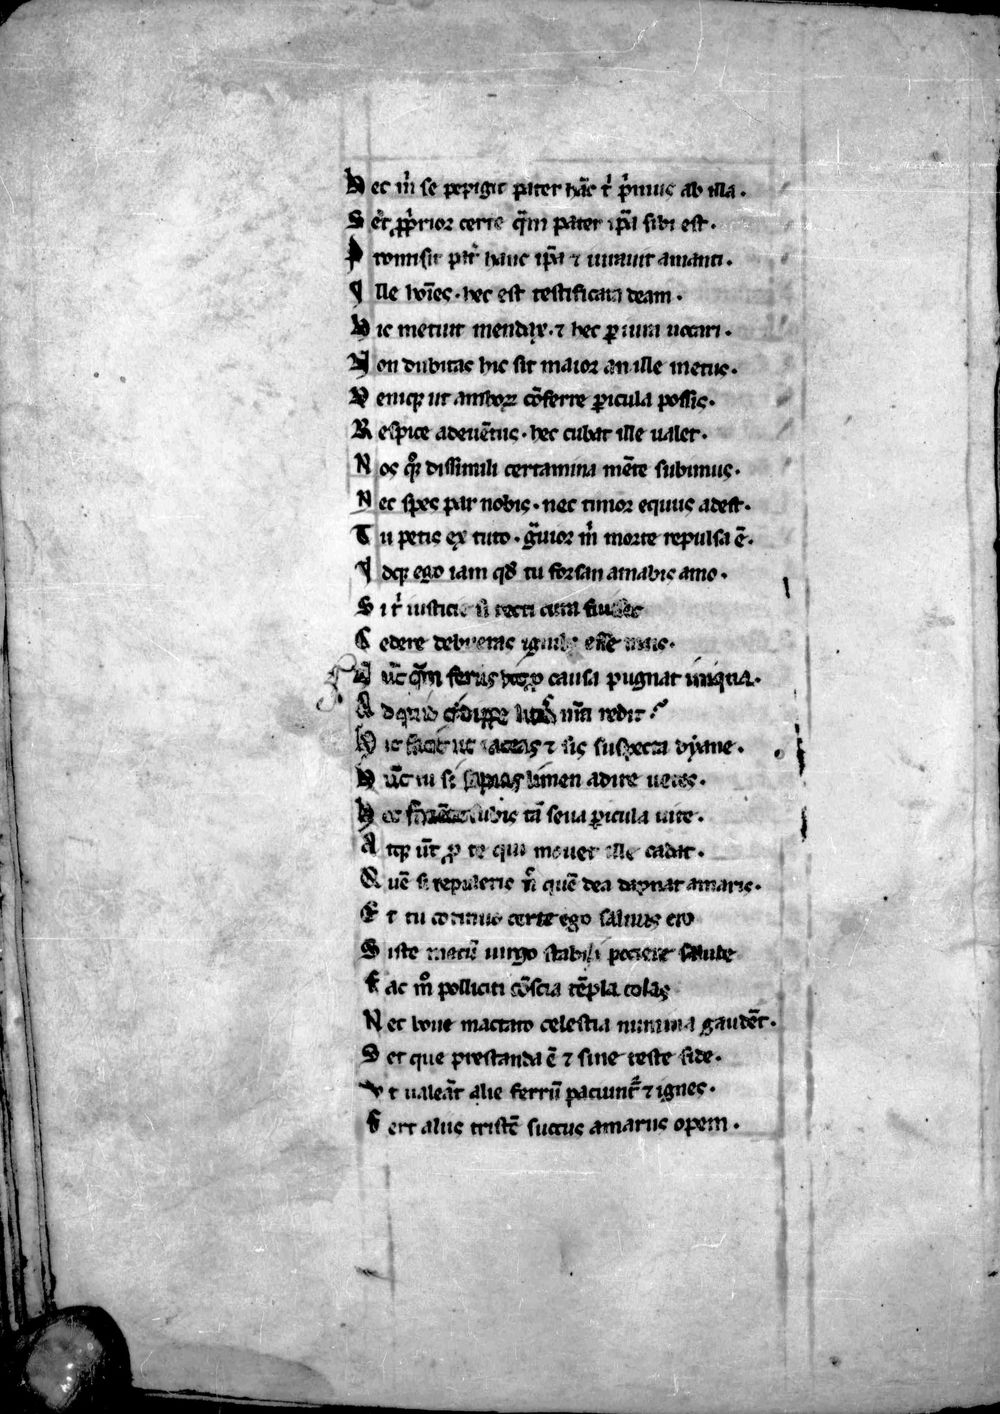 Hec m̄ se pepigit pater hāc ⁊ p̄mus ab illa.
Set ꝓprior certe q̄m pater ip̄a sibi est.
Promisit pat̾ hanc ip̄a ⁊ iurauit amanti.
Ille hoīes. hec est testificata deam.
Hic metuit mendax. ⁊ hec ꝑiura uocari.
Non dubitas hic sit maior an ille metus.
Deniqꝫ ut amboꝝ cōferre ꝑicula possis.
Respice adeuētus. hec cubat ille ualet.
Nos qͦꝫ dissimili certamina mēte subimus.
Nec spes par nobis. nec timor equus adest.
Tu petis ex tuto. g̃uior m̄ morte repulsa ē.
Idqꝫ ego iam qd̄ tu forsan amabis amo.
Si t̾ iusticie si recti cura fuisset
Cedere debueras ignibꝫ esse meis.
Nūc q̄m ferus hic ꝓ causa pugnat iniqua.
Ad quid cidippe litt̾a nr̄a redit.
Hic facit ut iaceas ⁊ sis suspecta dyane.
Hūc tu si sapias limen adire uetes.
Hoc faciēte subis tā seua ꝑicula uite.
Atqꝫ ut̄ ꝓ te qui mouet ille cadat.
Quē si repuleris n̄ quē dea dapnat amaris.
Et tu continuo certe ego saluus ero
Siste metū uirgo stabili pociere salute
Fac mͦ polliciti cōscia tēpla colas
Nec boue mactato celestia numina gaudēt.
Set que prestanda ē ⁊ sine teste fide.
Vt ualeāt alie ferrū paciunt̾ ⁊ ignes.
Fert aliis tristē succus amarus opem.